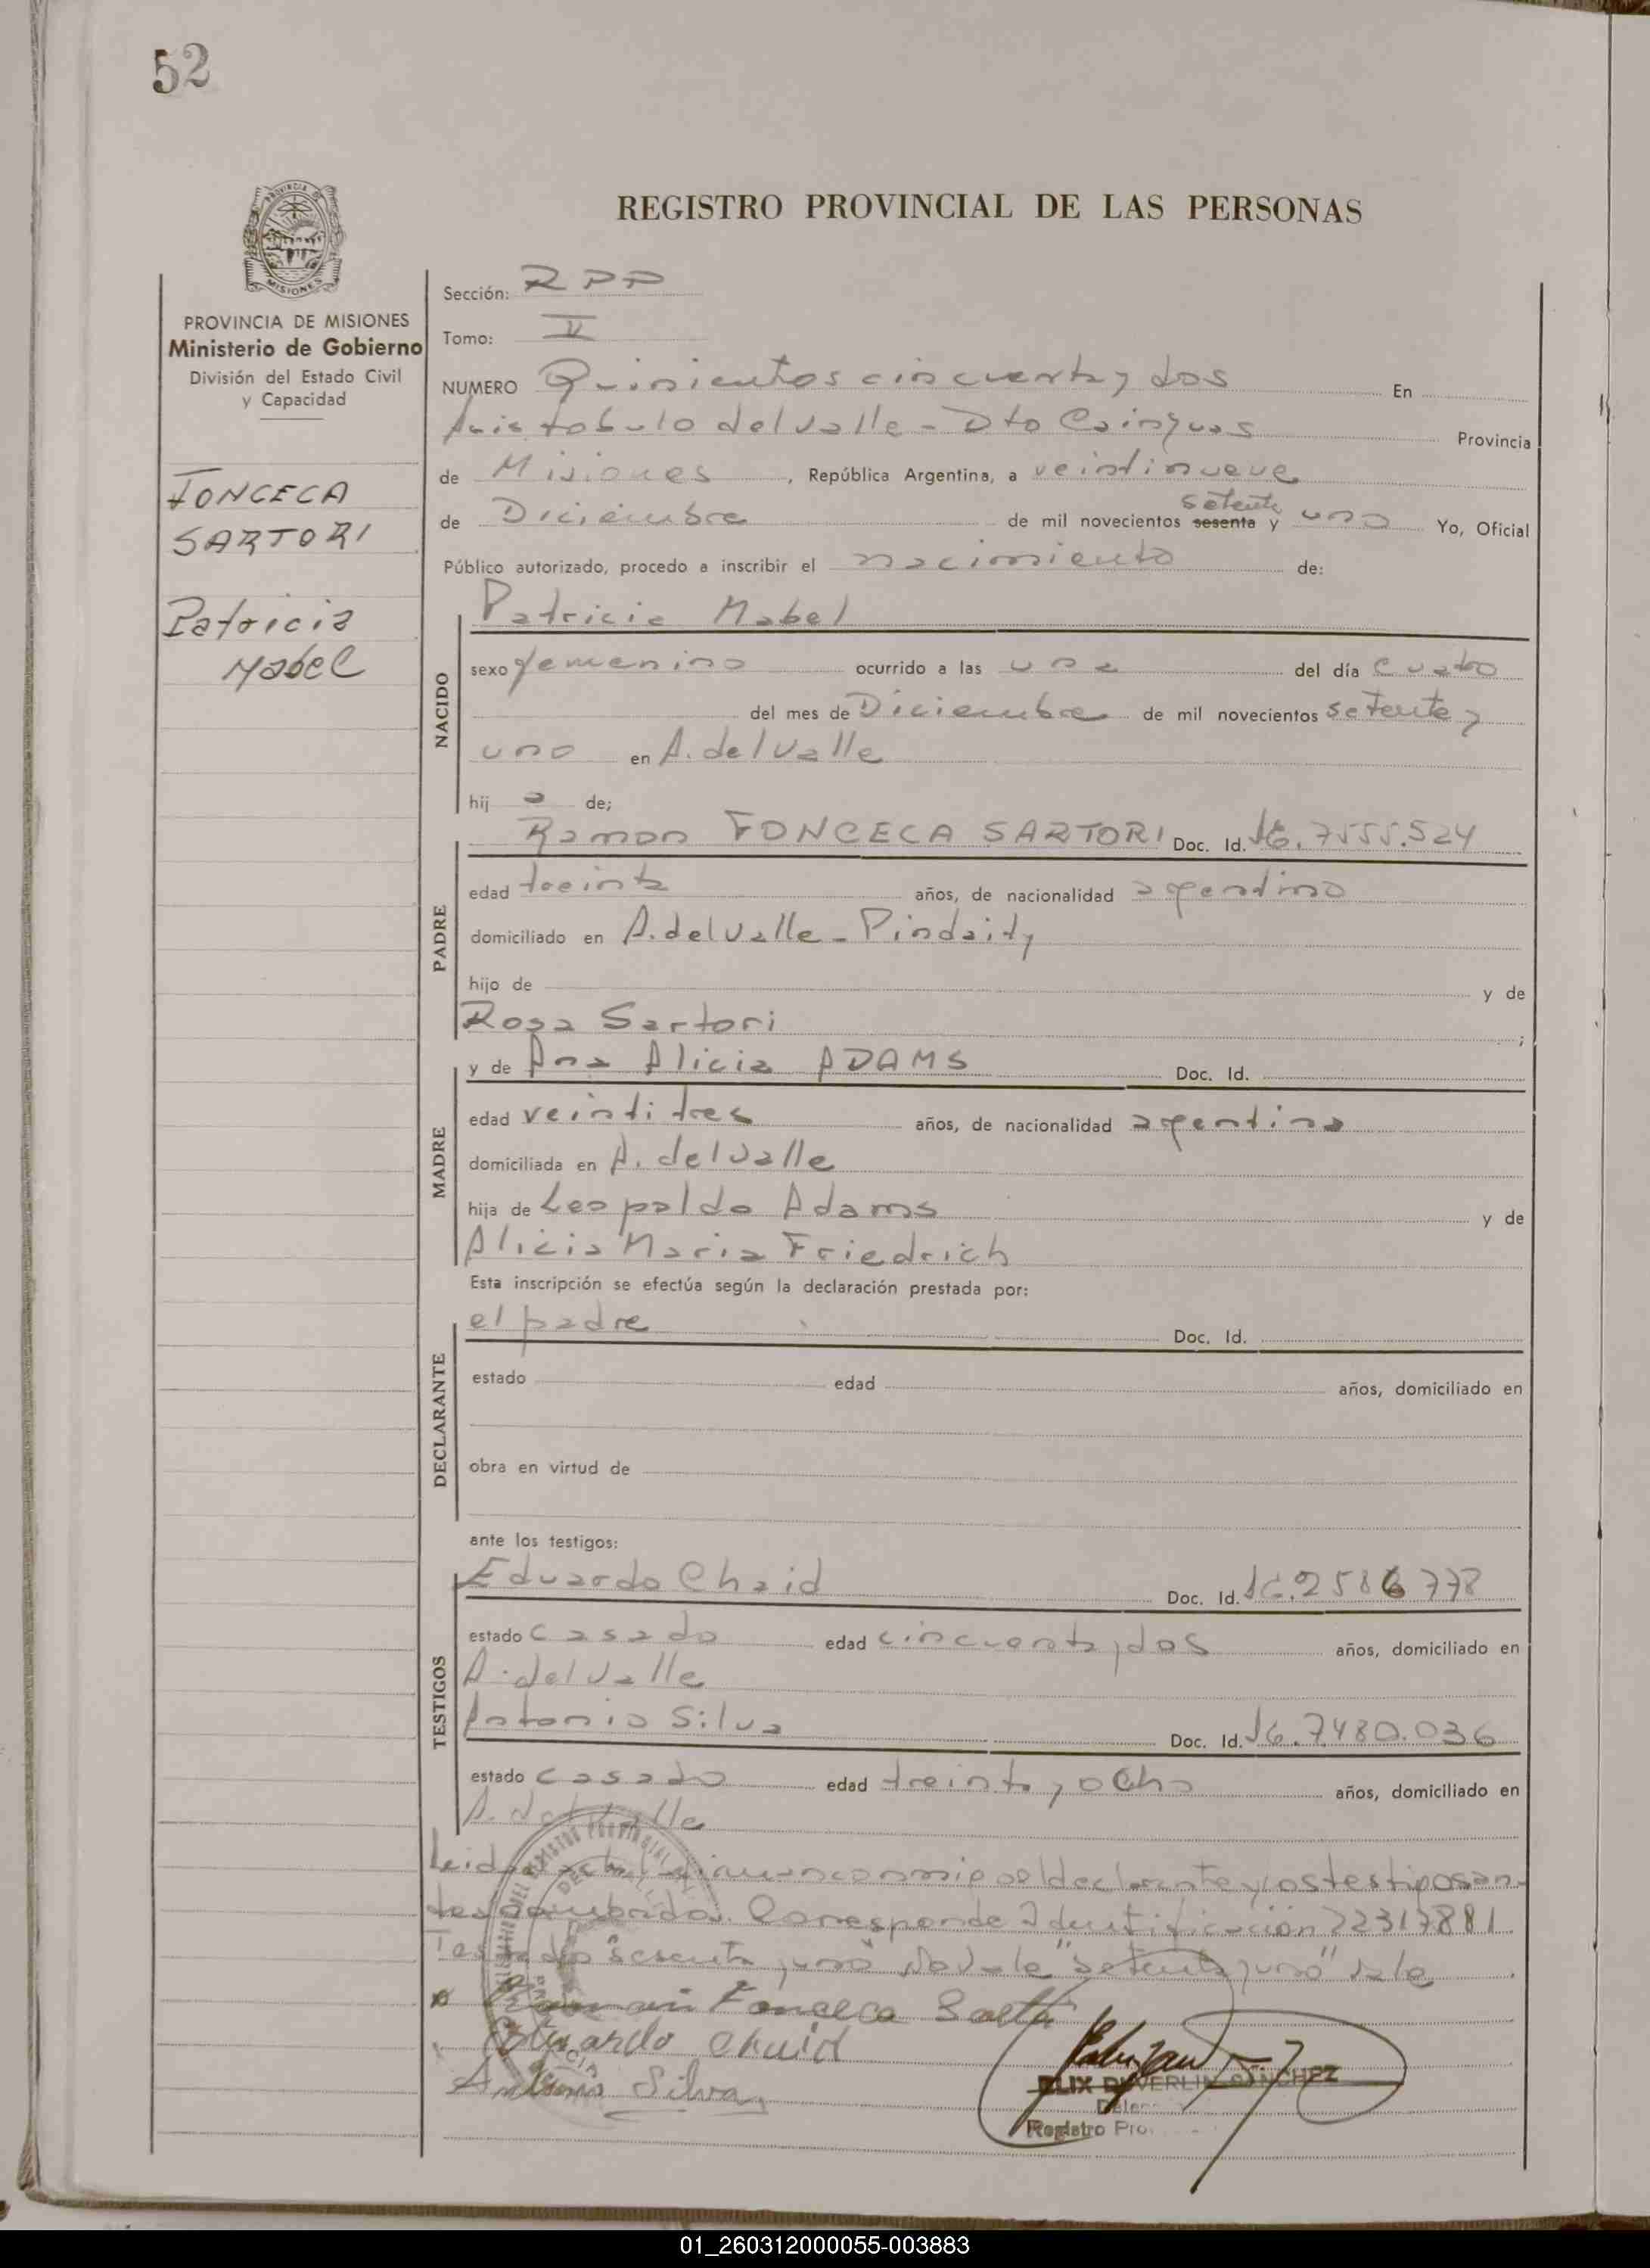 52
REGISTRO PROVINCIAL DE LAS PERSONAS
MISIONES
PROVINCIA DE MISIONES
Ministerio de Gobierno
División del Estado Civil
y Capacidad
FONCECA
SARTORI
Patricia
Mabel
Sección: RPP
Tomo: II
NUMERO Quinientos cincuenta y dos En
Aristobulo del Valle - Dto Cainguas Provincia
de Misiones, República Argentina, a veintinueve
setenta
de Diciembre de mil novecientos sesenta y uno Yo, Oficial
Público autorizado, procedo a inscribir el nacimiento de:
NACIDO
Patricia Mabel
sexo femenino ocurrido a las una del día cuatro
del mes de Diciembre de mil novecientos setenta y
uno en A. del Valle
hij a de;
PADRE
Ramon FONCECA SARTORI Doc. Id. 7555.524
edad treinta años, de nacionalidad argentino
domiciliado en A. del Valle - Pindaity
hijo de y de
Rosa Sartori ;
MADRE
y de Ana Alicia ADAMS Doc. Id.
edad veintitres años, de nacionalidad argentina
domiciliada en A. del Valle
hija de Leopoldo Adams y de
Alicia Maria Friedrich
Esta inscripción se efectúa según la declaración prestada por:
DECLARANTE
el padre Doc. Id.
estado edad años, domiciliado en
obra en virtud de
ante los testigos:
TESTIGOS
Eduardo Chaid Doc. Id. 2586778
estado casado edad cincuenta y dos años, domiciliado en
A. del Valle
Antonio Silva Doc. Id. 7480.036
estado casado edad treinta y ocho años, domiciliado en
A. del Valle
Leida el acta firman conmigo el declarante y los testigos an-
tes nombrados. Corresponde Identificación 22317881
Testado "sesenta y uno" No vale "setenta y uno" vale
Ramon Fonceca Sartori
Eduardo Chaid
Antonio Silva
SANCHEZ
Registro Pro
01_260312000055-003883